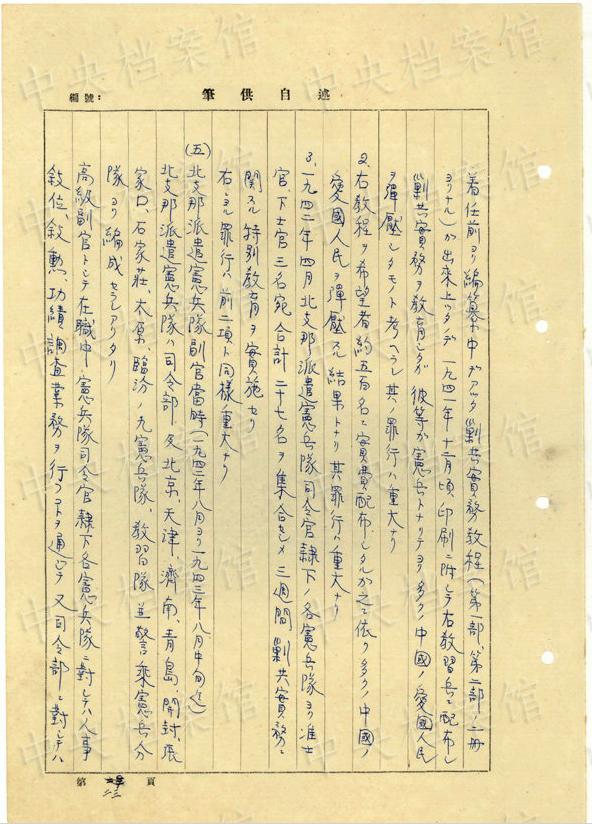 編號：
筆供自述
着任前ヨリ編纂中デアッタ剿共實務教程(第一部、第二部ノ二冊
ヨリナル)カ出来上ッタノデ一九四一年十二月頃、印刷ニ附シテ右教習兵ニ配布シ
剿共實務ヲ教育シタガ彼等カ憲兵トナリテヨリ多クノ中國ノ愛國人民
ヲ彈壓シタモノト考ヘラレ其ノ罪行ハ重大ナリ
2.右教程ヲ希望者約五百名ニ實費配布シタルカ之ニ依リ多クノ中國ノ
愛國人民ヲ彈壓スル結果トナリ其罪行ハ重大ナリ
3.一九四二年四月北支那派遣憲兵隊司令官隷下ノ各憲兵隊ヨリ准士
官、下士官三名宛合計二十七名ヲ集合セシメ三週間剿共實務ニ
関スル特別教育ヲ實施セリ
右ニヨル罪行ハ前二項ト同様重大ナリ
(五)北支那派遣憲兵隊副官當時(一九四二年八月ヨリ一九四三年八月中旬迄)
北支那派遣憲兵隊ハ司令部及北京、天津、濟南、青島、開封、張
家口、石家莊、太原、臨汾ノ九憲兵隊、教習隊並警乘憲兵分
隊ヨリ編成セラレアリタリ
高級副官トシテ在職中憲兵隊司令官隷下各憲兵隊ニ對シテハ人事
敘位、敘勲、功績調査業務ヲ行フコトヲ通シテ又司令部ニ對シテハ
第二三頁
中央档案馆